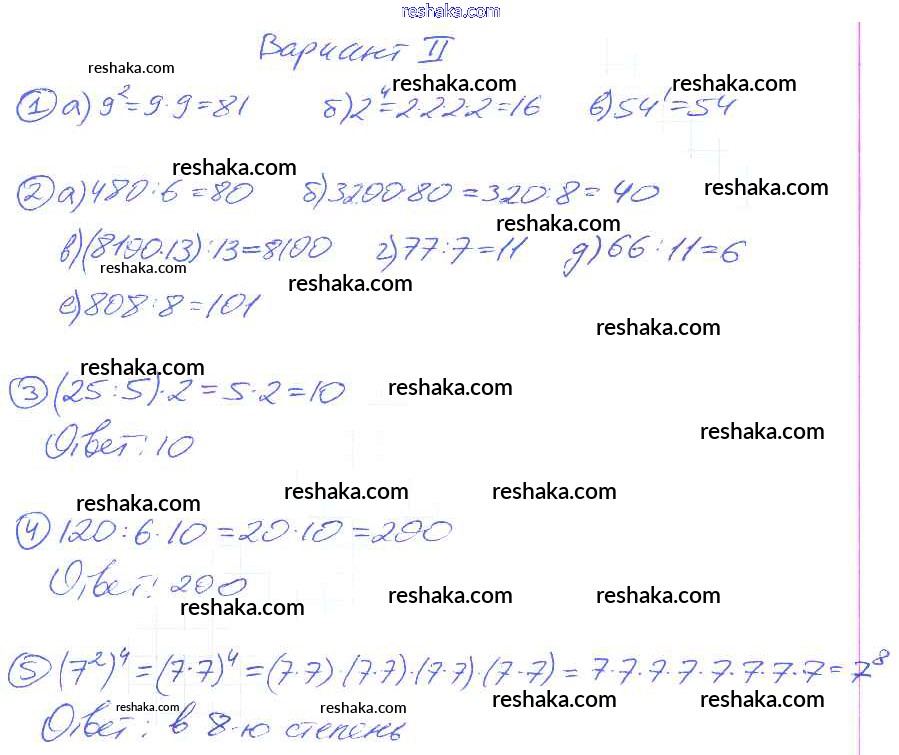 reshaka.com
Вариант II
reshaka.com
reshaka.com
reshaka.com
① а) 9² = 9·9 = 81 б) 2⁴ = 2·2·2·2 = 16 в) 54¹ = 54
reshaka.com
reshaka.com
② а) 480:6 = 80 б) 3200:80 = 320:8 = 40
reshaka.com
в) (8100·13):13 = 8100 г) 77:7 = 11 д) 66:11 = 6
reshaka.com
reshaka.com
е) 808:8 = 101
reshaka.com
reshaka.com
reshaka.com
③ (25:5)·2 = 5·2 = 10
reshaka.com
Ответ: 10
reshaka.com
reshaka.com
reshaka.com
④ 120:6·10 = 20·10 = 200
Ответ: 200
reshaka.com
reshaka.com
reshaka.com
⑤ (7²)⁴ = (7·7)⁴ = (7·7)·(7·7)·(7·7)·(7·7) = 7·7·7·7·7·7·7·7 = 7⁸
reshaka.com
reshaka.com
reshaka.com
reshaka.com
Ответ: в 8-ю степень